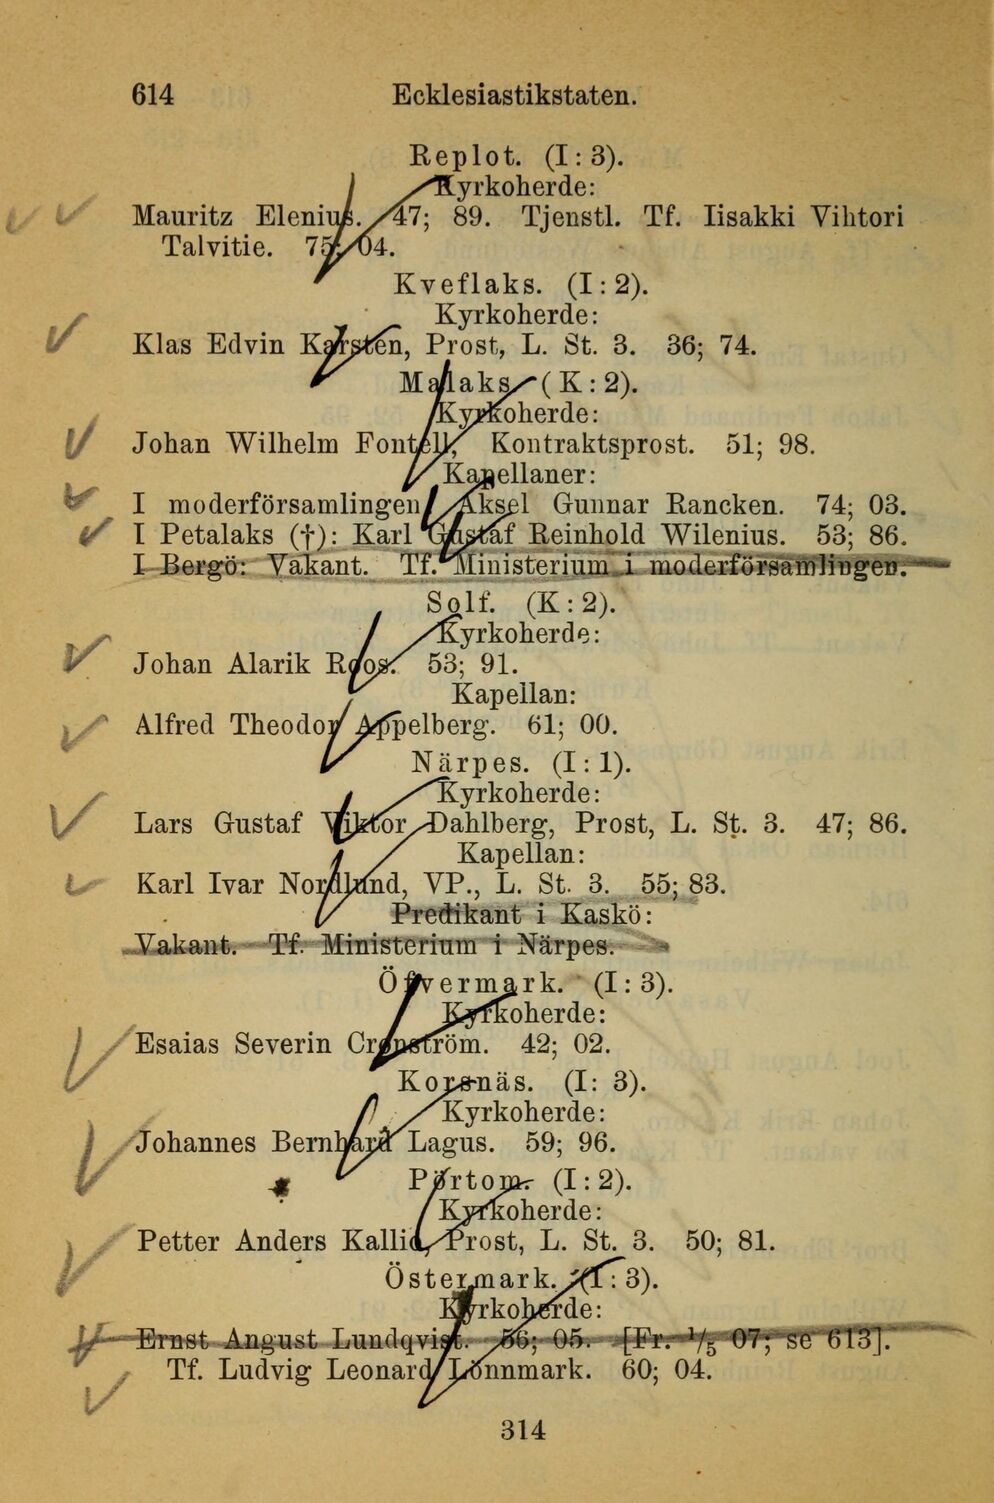 614 Ecklesiastikstaten.
Replot. (I: 3).
Kyrkoherde:
Mauritz Elenius. 47; 89. Tjenstl. Tf. Iisakki Vihtori
Talvitie. 75; 04.
Kveflaks. (I: 2).
Kyrkoherde:
Klas Edvin Karsten, Prost, L. St. 3. 36; 74.
Malaks. (K: 2).
Kyrkoherde:
Johan Wilhelm Fontell, Kontraktsprost. 51; 98.
Kapellaner:
I moderförsamlingen: Aksel Gunnar Rancken. 74; 03.
I Petalaks (†): Karl Gustaf Reinhold Wilenius. 53; 86.
I Bergö: Vakant. Tf. Ministerium i moderförsamlingen.
Solf. (K: 2).
Kyrkoherde:
Johan Alarik Roos. 53; 91.
Kapellan:
Alfred Theodor Appelberg. 61; 00.
Närpes. (I: 1).
Kyrkoherde:
Lars Gustaf Viktor Dahlberg, Prost, L. St. 3. 47; 86.
Kapellan:
Karl Ivar Nordlund, VP., L. St. 3. 55; 83.
Predikant i Kaskö:
Vakant. Tf. Ministerium i Närpes.
Öfvermark. (I: 3).
Kyrkoherde:
Esaias Severin Cronström. 42; 02.
Korsnäs. (I: 3).
Kyrkoherde:
Johannes Bernhard Lagus. 59; 96.
Pörtom. (I: 2).
Kyrkoherde:
Petter Anders Kallio, Prost, L. St. 3. 50; 81.
Östermark. (I: 3).
Kyrkoherde:
Ernst August Lundqvist. 56; 05. [Fr. 1/5 07; se 613].
Tf. Ludvig Leonard Lönnmark. 60; 04.
314